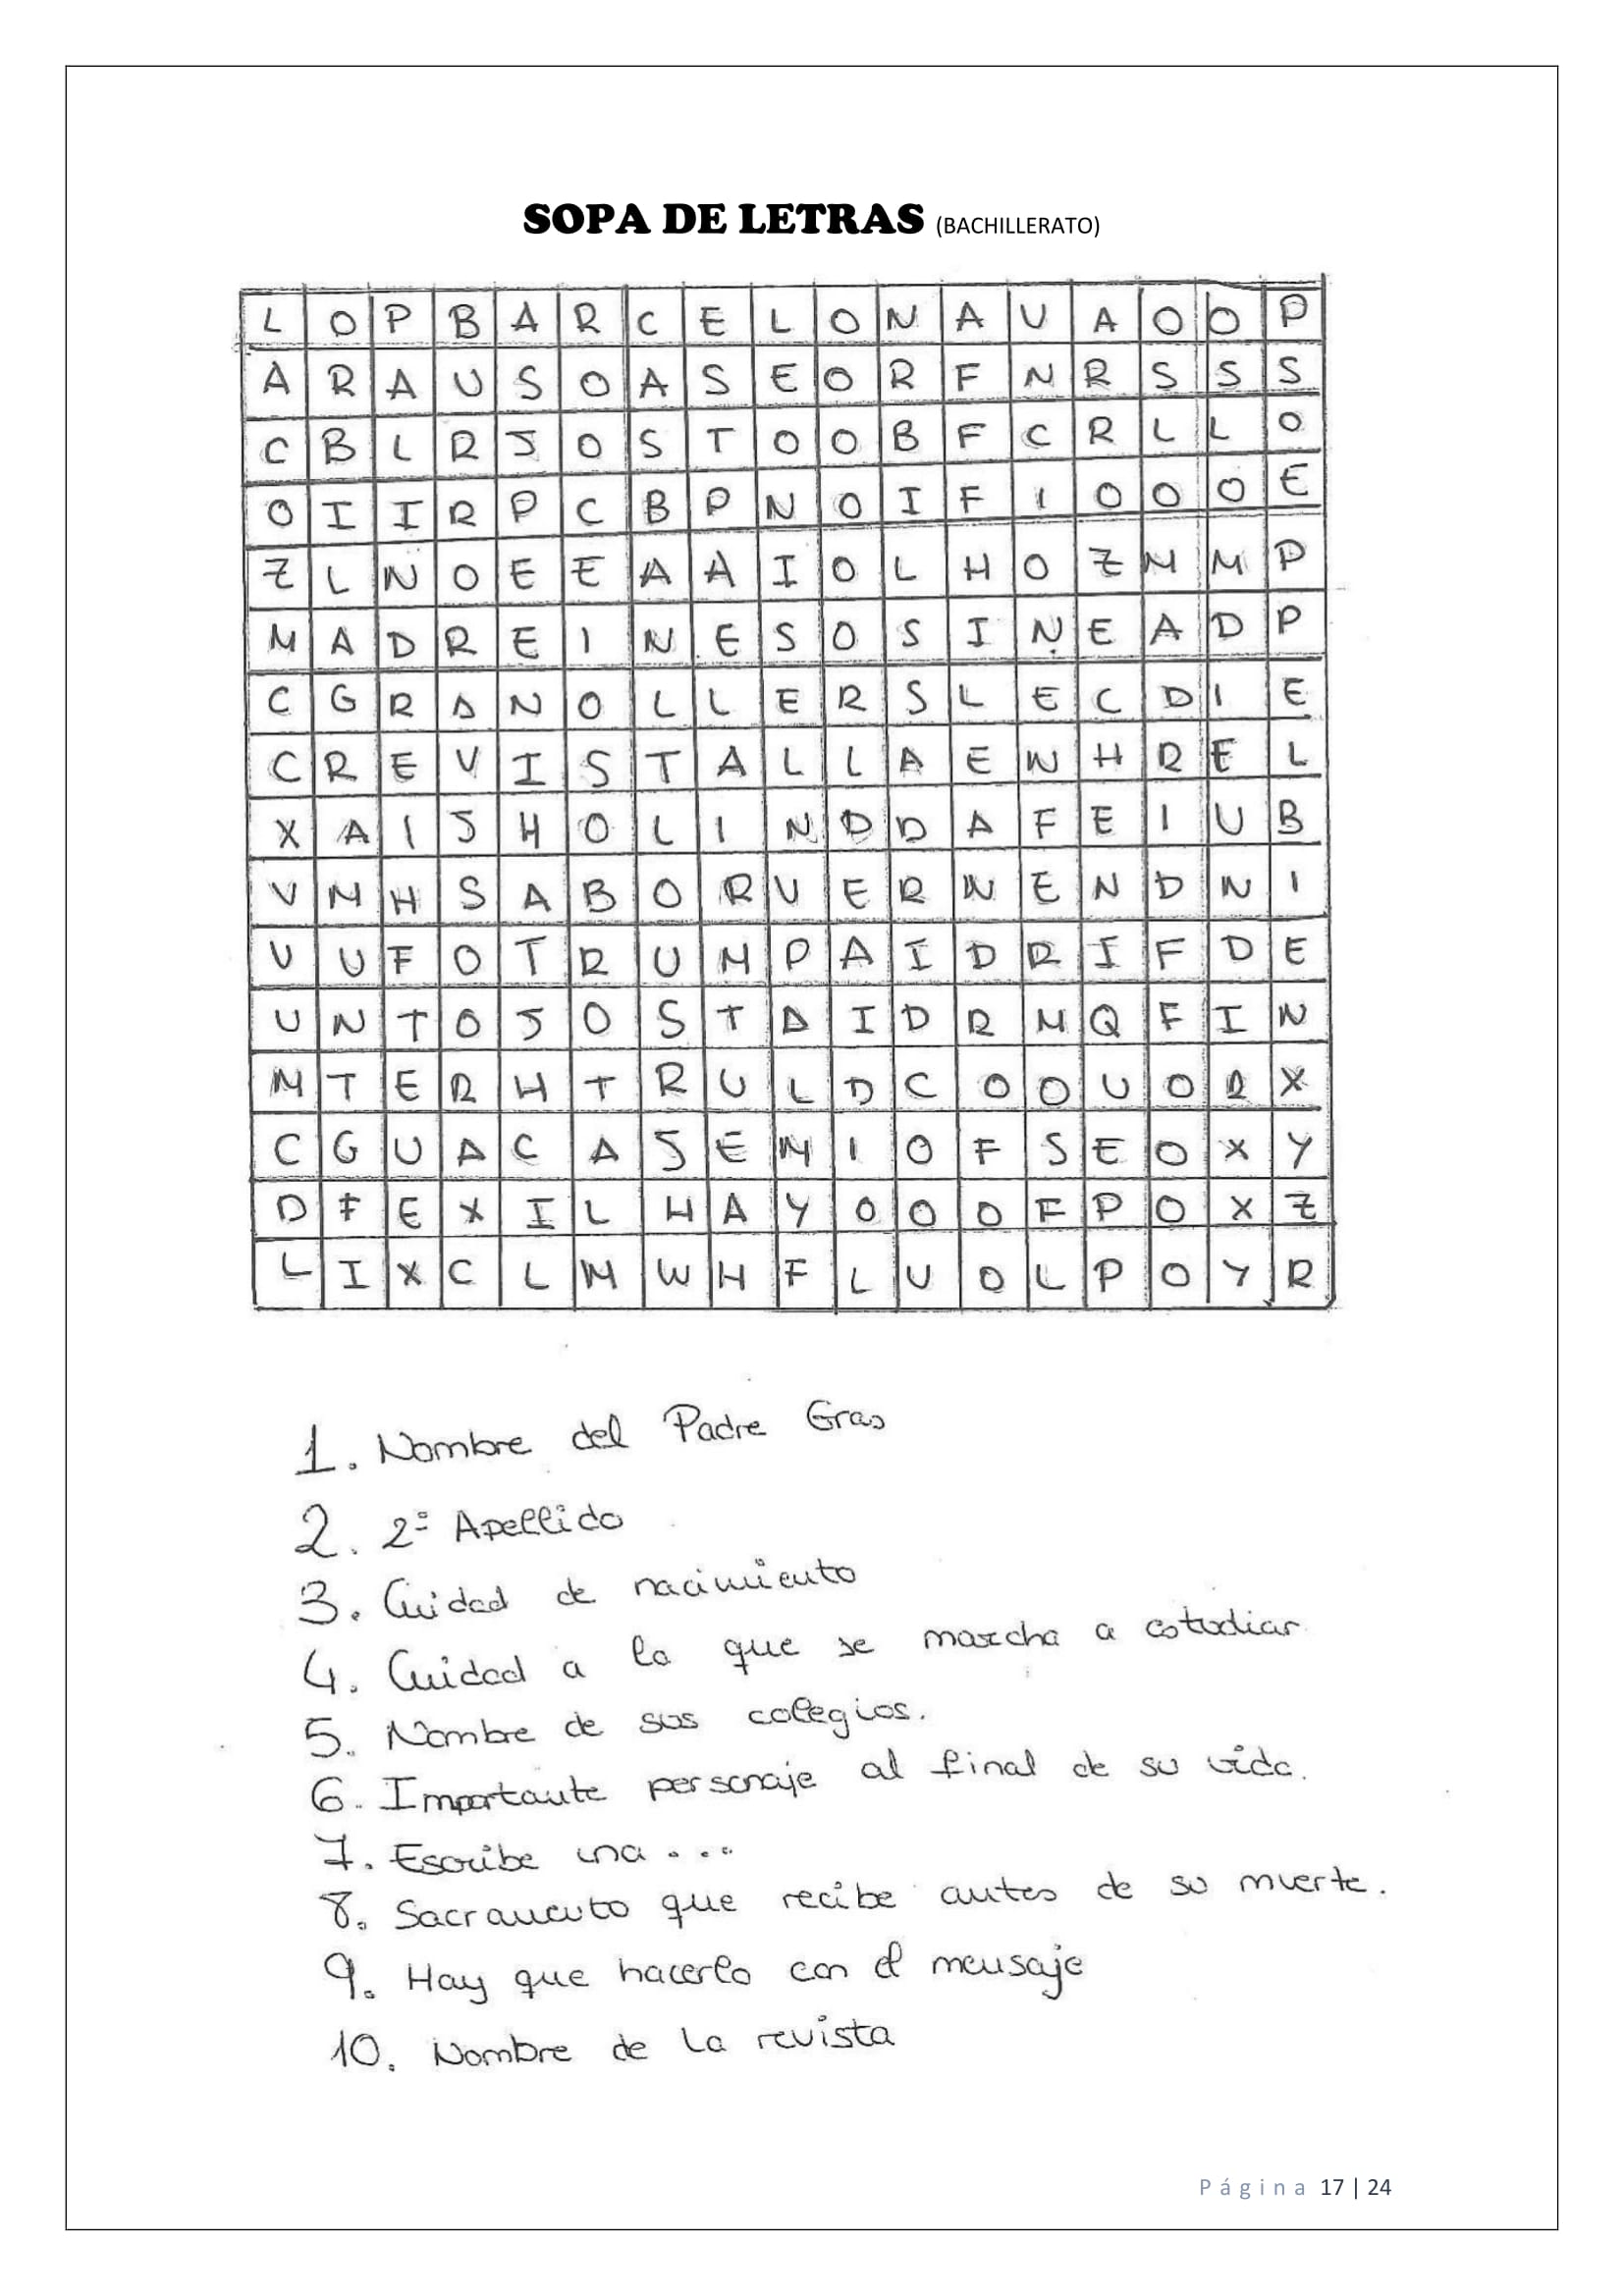 SOPA DE LETRAS (BACHILLERATO)
L O P B A R C E L O N A U A O O P
A R A U S O A S E O R F N R S S S
C B L R J O S T O O B F C R L L O
O I I R P C B P N O I F I O O O E
Z L N O E E A A I O L H O Z M M P
M A D R E I N E S O S I N E A D P
C G R A N O L L E R S L E C D I E
C R E V I S T A L L A E N H R E L
X A I J H O L I N D D A F E I U B
V M H S A B O R U E R N E N D N I
U U F O T R U M P A I D R I F D E
U N T O J O S T A I D R M Q F I N
M T E R H T R U L D C O O U O R X
C G U A C A J E M I O F S E O X Y
D F E X I L H A Y O O O F P O X Z
L I X C L M W H F L U O L P O Y R
1. Nombre del Padre Gras
2. 2º Apellido
3. Ciudad de nacimiento
4. Ciudad a la que se marcha a estudiar
5. Nombre de sus colegios.
6. Importante personaje al final de su vida.
7. Escribe una...
8. Sacramento que recibe antes de su muerte.
9. Hay que hacerlo con el mensaje
10. Nombre de la revista
Página 17 | 24